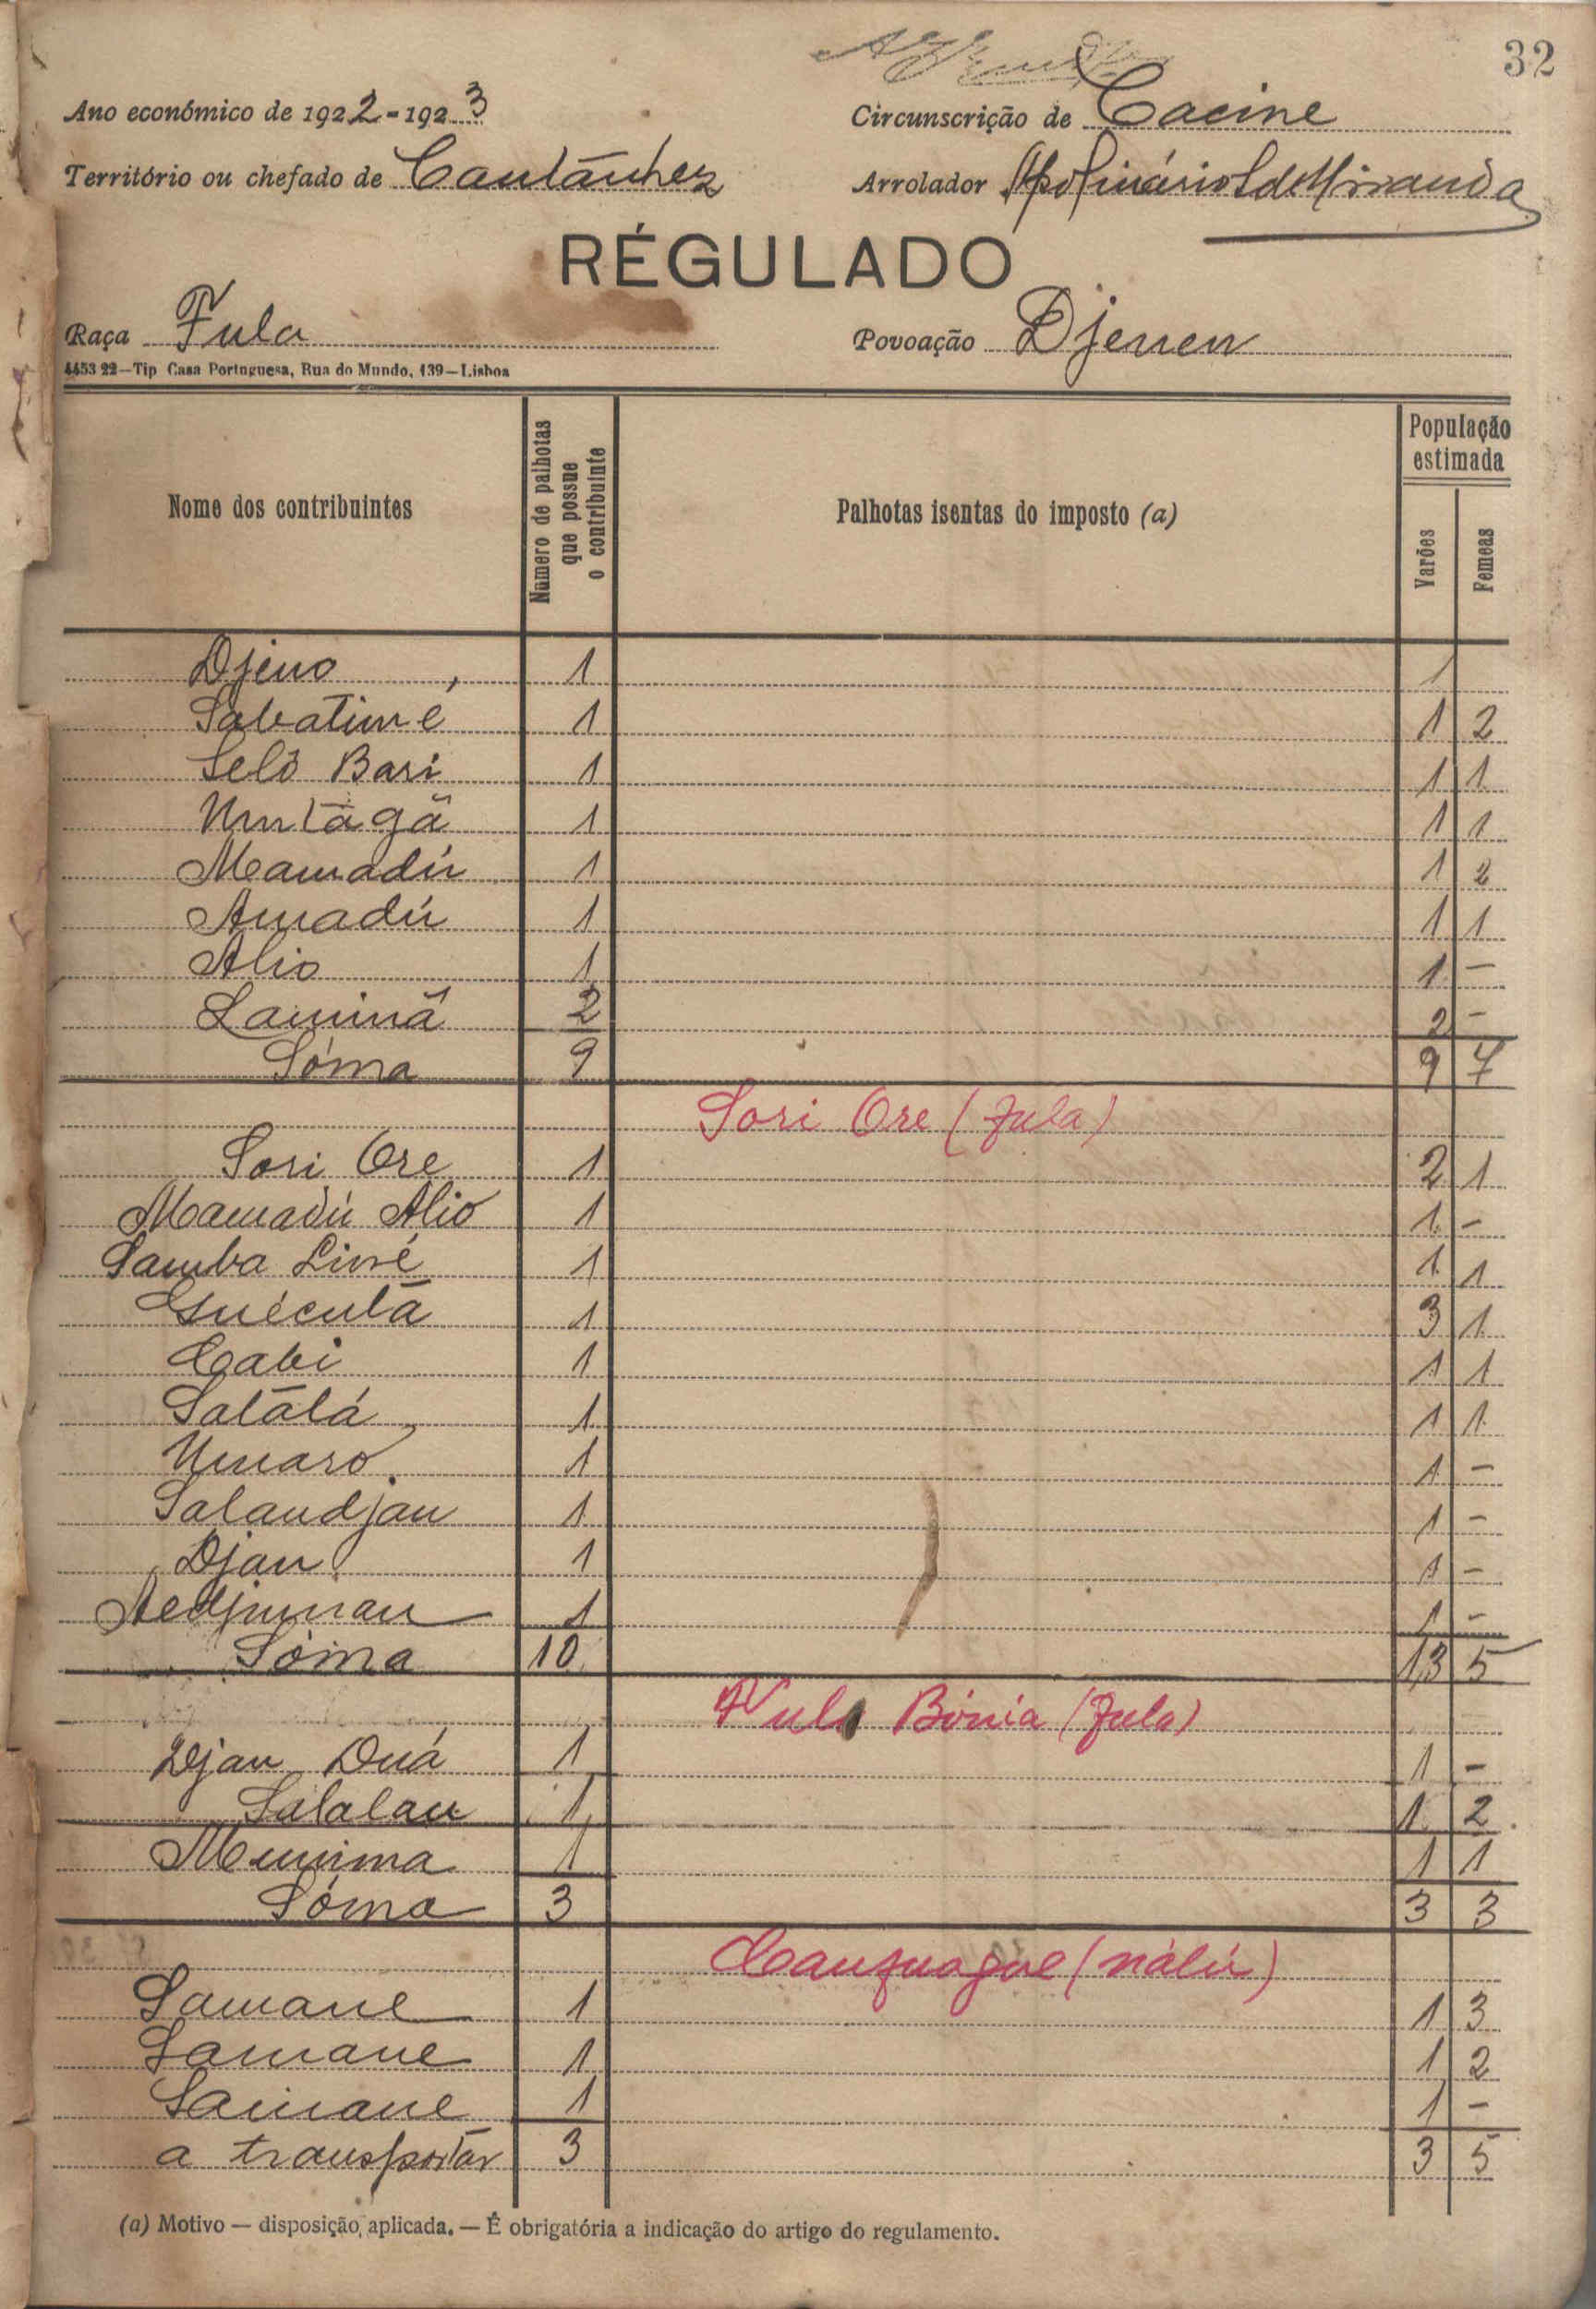 32
Ano económico de 1922-1923
Circunscrição de Cacine
Território ou chefado de Cantänhez
Arrolador Apolinário S de Miranda
RÉGULADO
Raça Fula
Povoação Djenen
4453 22—Tip Casa Portuguesa, Rua do Mundo, 139—Lisboa
Nome dos contribuintes
Número de palhotas que possue o contribuinte
Palhotas isentas do imposto (a)
População estimada
Varões
Femeas
Djeno 1 1
Sabatimé 1 1 2
Selô Bari 1 1 1
1 1 1
Mamadú 1 1 2
Amadú 1 1 1
Alio 1 1 -
Laminã 2 2 -
Sóma 9 9 7
Sori Ore (fula)
Sori Ore 1 2 1
Mamadú Alio 1 1 -
Samba 1 1 1
1 3 1
Cabi 1 1 1
Satálá 1 1 1
Umaro 1 1 -
Salandjan 1 1 -
Djan 1 1 -
1 1 -
Sóma 10 13 5
Bónia (fula)
Djan Duá 1 1 -
Salalau 1 1 2
1 1 1
Sóma 3 3 3
(nálú)
Samane 1 1 3
Samane 1 1 2
Samane 1 1 -
a transportar 3 3 5
(a) Motivo — disposição aplicada. — É obrigatória a indicação do artigo do regulamento.